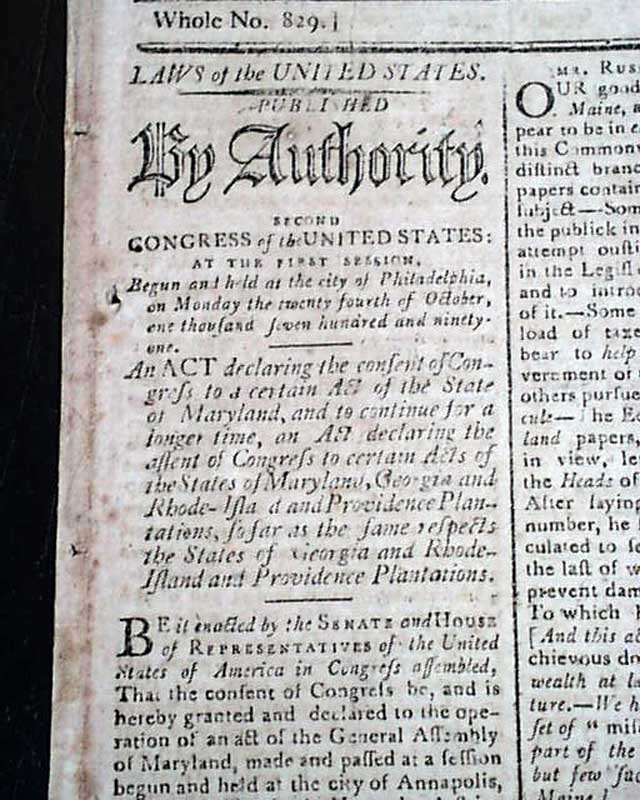 Whole No. 829.]
LAWS of the UNITED STATES.
PUBLISHED
By Authority.
SECOND
CONGRESS of the UNITED STATES:
AT THE FIRST SESSION,
Begun and held at the city of Philadelphia,
on Monday the twenty fourth of October,
one thouſand ſeven hundred and ninety-
one.
An ACT declaring the conſent of Con-
greſs to a certain Act of the State
of Maryland, and to continue for a
longer time, an Act declaring the
aſſent of Congreſs to certain Acts of
the States of Maryland, Georgia and
Rhode-Iſla d and Providence Plan-
tations, ſo far as the ſame reſpects
the States of Georgia and Rhode-
Iſland and Providence Plantations.
BE it enacted by the SENATE and HOUSE
of REPRESENTATIVES of the United
States of America in Congreſs aſſembled,
That the conſent of Congreſs be, and is
hereby granted and declared to the ope-
ration of an act of the General Aſſembly
of Maryland, made and paſſed at a ſeſſion
begun and held at the city of Annapolis,
MR. RUS
OUR good
Maine, a
pear to be in e
this Commonw
diſtinct branc
papers contain
ſubject—Som
the publick in
attempt ouſti
in the Legiſl
and to introd
of it.—Some
load of taxe
bear to help
vernment of t
others purſue
cule—The Ea
land papers,
in view, le
the Heads of
After laying
number, he
culated to ſe
the laſt of w
prevent dam
To which
[And this a
chievous do
wealth at la
ture.—We h
ſet of " miſ
part of the
but few fac
Maine!